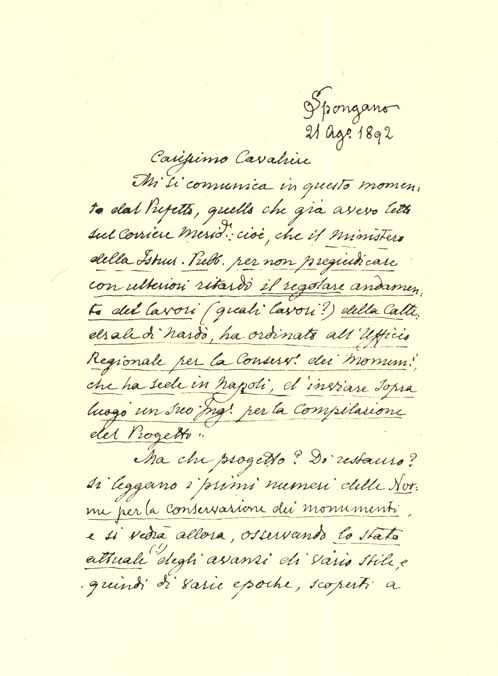 Spongano
21 Ago. 1892
Carissimo Cavaliere
Mi si comunica in questo momen-
to dal Prefetto, quello che già avevo letto
sul Corriere Merid.: cioè, che il Ministero
della Istruz. Pubb. per non pregiudicare
con ulteriori ritardi il regolare andamen-
to dei lavori (quali lavori?) della Catte-
drale di Nardò, ha ordinato all'Ufficio
Regionale per la Conserv. dei Monum.,
che ha sede in Napoli, d'inviare sopra
luogo un suo Ing. per la compilazione
del Progetto"
Ma che progetto? Di restauro?
Si leggano i primi numeri delle Nor-
me per la conservazione dei monumenti,
e si vedrà allora, osservando lo stato
attuale (1) degli avanzi di vario stile, e
quindi di varie epoche, scoperti a